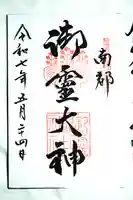 南郡
御靈大神
令和七年五月二十四日